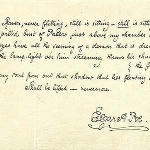 Raven, never flitting, still is sitting — still is sitting
pallid bust of Pallas just above my chamber
eyes have all the seeming of a demon that is
the lamp-light o'er him streaming throws his shadow
the floor
my soul from out that shadow that lies floating
Shall be lifted — nevermore.
Edgar A. Poe.